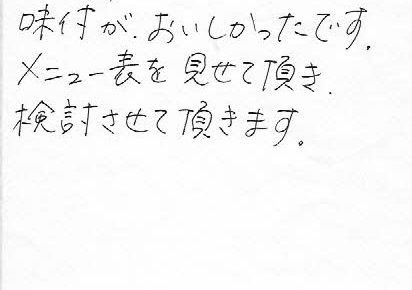 味付が、おいしかったです。
メニュー表を見せて頂き、
検討させて頂きます。